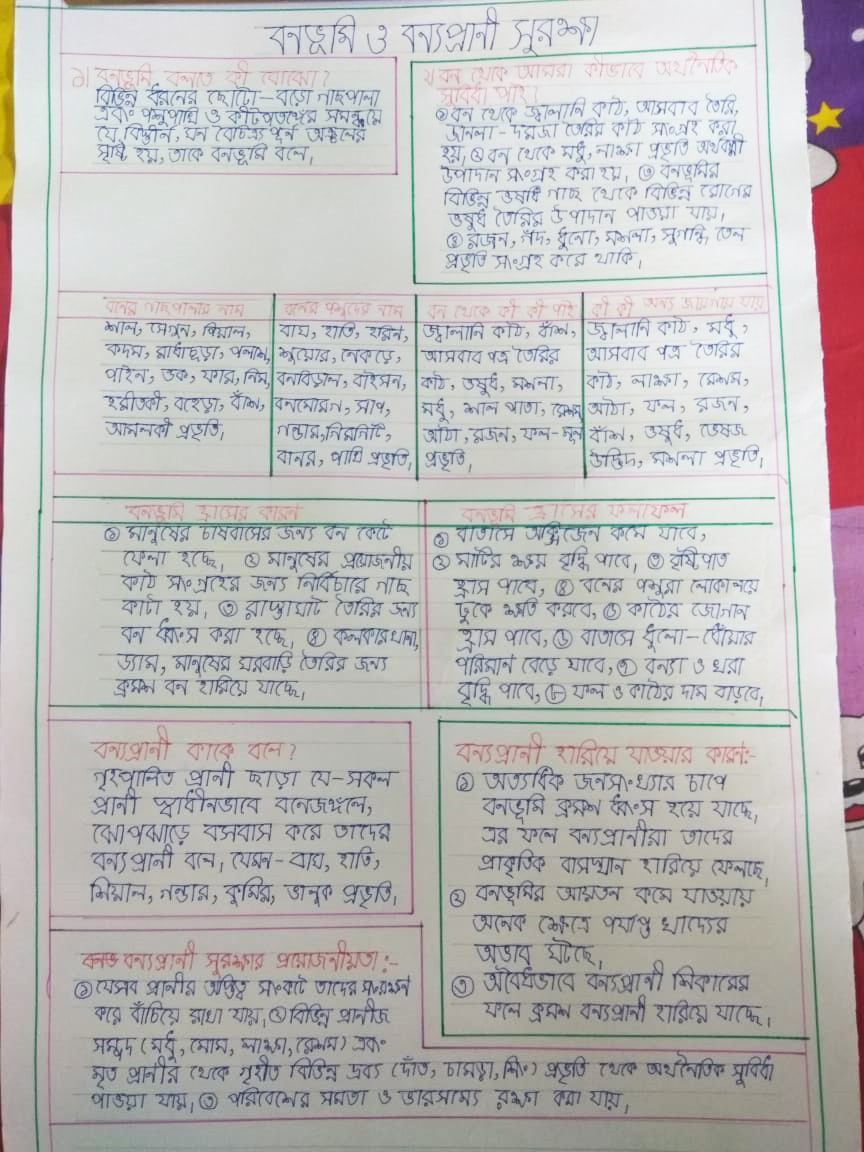 বনভূমি ও বন্যপ্রাণী সুরক্ষা
১। বনভূমি বলতে কী বোঝো?
বিভিন্ন ধরনের ছোটো-বড়ো গাছপালা
এবং পশুপাখি ও কীটপতঙ্গের সমন্বয়ে
যে বিস্তীর্ন, ঘন বৈচিত্র্য পূর্ন অঞ্চলের
সৃষ্টি হয়, তাকে বনভূমি বলে।
২। বন থেকে আমরা কীভাবে অর্থনৈতিক
সুবিধা পাই?
① বন থেকে জ্বালানি কাঠ, আসবাব তৈরি,
জানলা-দরজা তৈরির কাঠ সংগ্রহ করা
হয়, ② বন থেকে মধু, লাক্ষা প্রভৃতি অর্থকরী
উপাদান সংগ্রহ করা হয়, ③ বনভূমির
বিভিন্ন ভষধি গাছ থেকে বিভিন্ন রোগের
ভষুধ তৈরির উপাদান পাওয়া যায়,
④ রজন, গঁদ, ধুনো, মশলা, সুগন্ধি তেল
প্রভৃতি সংগ্রহ করে থাকি।
বনের গাছপালার নাম
শাল, সেগুন, পিয়াল,
কদম, রাধাচূড়া, পলাশ,
পাইন, ভক, ফার, নিম,
হরীতকী, বহেড়া, বাঁশ,
আমলকী প্রভৃতি।
বনের পশুদের নাম
বাঘ, হাতি, হরিন,
শুয়োর, নেকড়ে,
বনবিড়াল, বাইসন,
বনমোরগ, সাপ,
গন্ডার, গিরগিটি,
বানর, পাখি প্রভৃতি।
বন থেকে কী কী পাই
জ্বালানি কাঠ, বাঁশ,
আসবাব পত্র তৈরির
কাঠ, ভষুধ, মশলা,
মধু, শাল পাতা, রেশম,
আঠা, রজন, ফল-মূল
প্রভৃতি।
কী কী অন্য জায়গায় যায়
জ্বালানি কাঠ, মধু,
আসবাব পত্র তৈরির
কাঠ, লাক্ষা, রেশম,
আঠা, ফল, রজন,
বাঁশ, ভষুধ, ভেষজ
উদ্ভিদ, মশলা প্রভৃতি।
বনভূমি হ্রাসের কারন
① মানুষের চাষবাসের জন্য বন কেটে
ফেলা হচ্ছে, ② মানুষের প্রয়োজনীয়
কাঠ সংগ্রহের জন্য নির্বিচারে গাছ
কাটা হয়, ③ রাস্তাঘাট তৈরির জন্য
বন ধ্বংস করা হচ্ছে, ④ কলকারখানা,
ড্যাম, মানুষের ঘরবাড়ি তৈরির জন্য
ক্রমশ বন হারিয়ে যাচ্ছে।
বনভূমি হ্রাসের ফলাফল
① বাতাসে অক্সিজেন কমে যাবে,
② মাটির ক্ষয় বৃদ্ধি পাবে, ③ বৃষ্টিপাত
হ্রাস পাবে, ④ বনের পশুরা লোকালয়ে
ঢুকে ক্ষতি করবে, ⑤ কাঠের জোগান
হ্রাস পাবে, ⑥ বাতাসে ধুলো-ধোঁয়ার
পরিমান বেড়ে যাবে, ⑦ বন্যা ও খরা
বৃদ্ধি পাবে, ⑧ ফল ও কাঠের দাম বাড়বে।
বন্যপ্রানী কাকে বলে?
গৃহপালিত প্রানী ছাড়া যে-সকল
প্রানী স্বাধীনভাবে বনেজঙ্গলে,
ঝোপঝাড়ে বসবাস করে তাদের
বন্যপ্রানী বলে। যেমন- বাঘ, হাতি,
শিয়াল, গন্ডার, কুমির, ভালুক প্রভৃতি।
বন্যপ্রানী হারিয়ে যাওয়ার কারন:-
① অত্যধিক জনসংখ্যার চাপে
বনভূমি ক্রমশ ধ্বংস হয়ে যাচ্ছে,
এর ফলে বন্যপ্রানীরা তাদের
প্রাকৃতিক বাসস্থান হারিয়ে ফেলছে।
② বনভূমির আয়তন কমে যাওয়ায়
অনেক ক্ষেত্রে পর্যাপ্ত খাদ্যের
অভাব ঘটছে।
③ অবৈধভাবে বন্যপ্রানী শিকারের
ফলে ক্রমশ বন্যপ্রানী হারিয়ে যাচ্ছে।
বন্যপ্রানী সুরক্ষার প্রয়োজনীয়তা:-
① যেসব প্রানীর অস্তিত্ব সংকটে তাদের সংরক্ষন
করে বাঁচিয়ে রাখা যায়, ② বিভিন্ন প্রানীজ
সম্পদ (মধু, মোম, লাক্ষা, রেশম) এবং
মৃত প্রানীর থেকে গৃহীত বিভিন্ন দ্রব্য (দাঁত, চামড়া, শিং) প্রভৃতি থেকে অর্থনৈতিক সুবিধা
পাওয়া যায়, ③ পরিবেশের সমতা ও ভারসাম্য রক্ষা করা যায়।